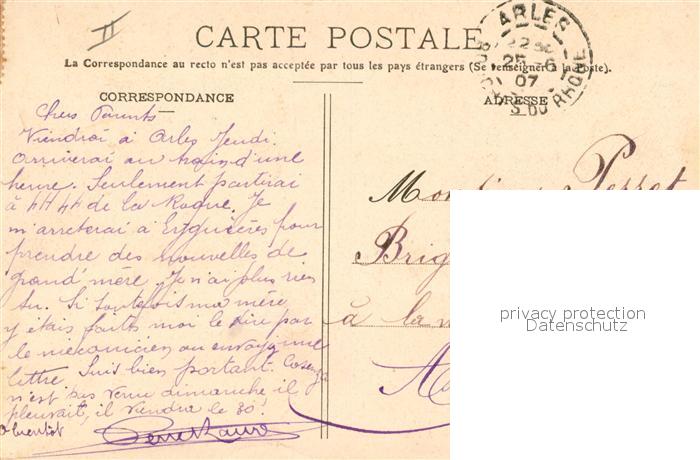 II
CARTE POSTALE
La Correspondance au recto n'est pas acceptée par tous les pays étrangers (Se renseigner à la Poste).
ARLES
25 - 6
07
B. DU RHONE
CORRESPONDANCE
ADRESSE
Chers Parents
Viendrai à Arles Jeudi.
arriverai au train d'une
heure. Seulement partirai
à 4H 44 de la Roque. Je
m'arreterai à Eyguières pour
prendre des nouvelles de
grand'mère. Je n'ai plus rien
su. Si toutefois ma mère
y étais faites moi le dire par
le mecanicien ou envoyez une
lettre. Suis bien portant.
n'est pas venu dimanche, il
pleuvait, il viendra le 30.
a bientôt
Perret
Brig
à la
privacy protection
Datenschutz